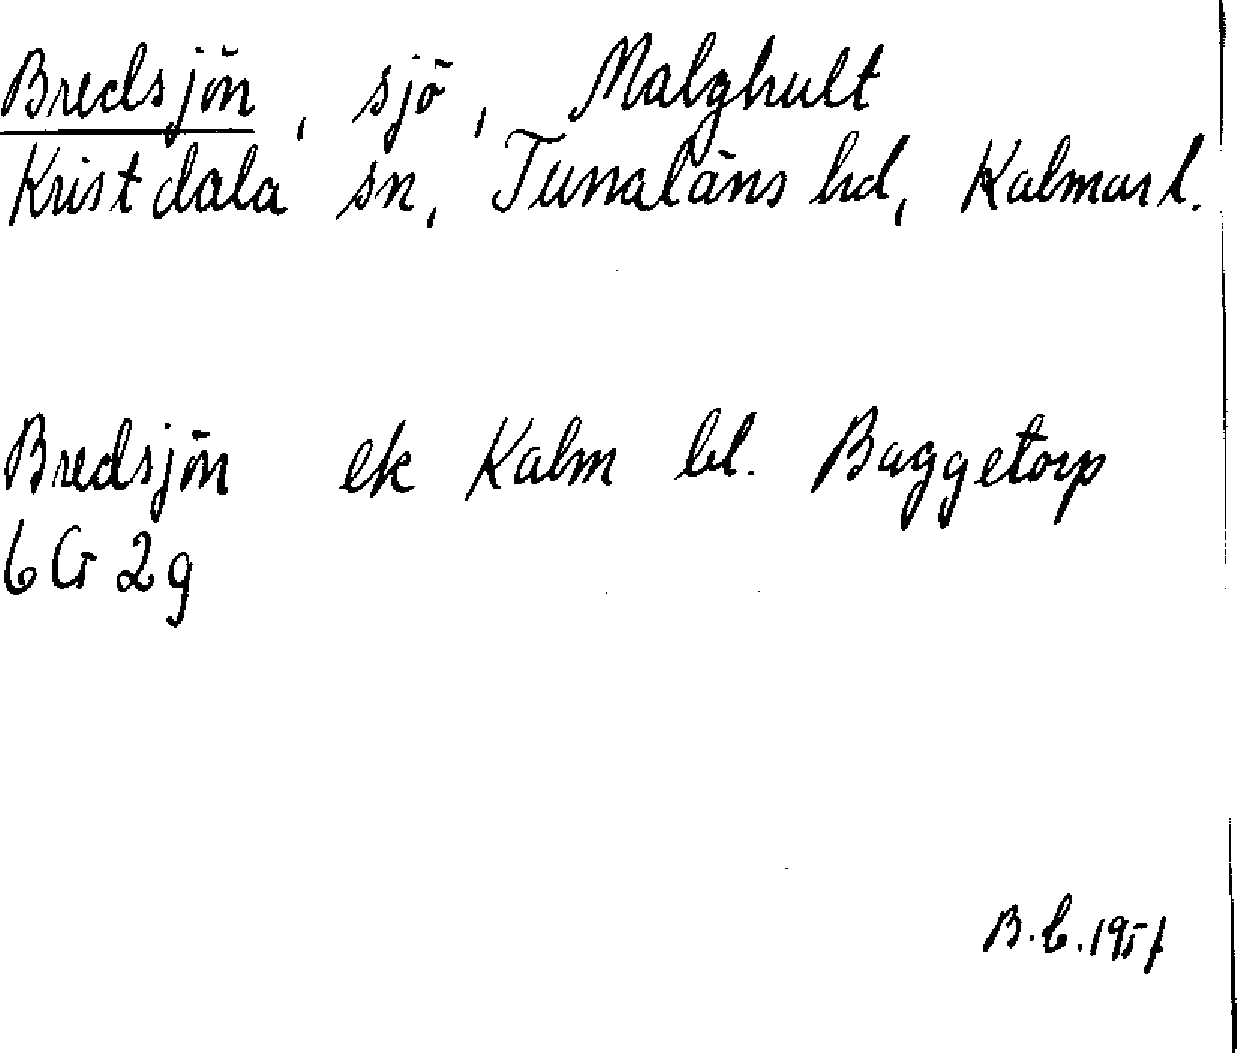 Bredsjön, sjö, Malghult
Kristdala sn, Tunaläns hd, Kalmar l.
Bredsjön ek Kalm bl. Baggetorp
6 G 2 g
B. C. 1957